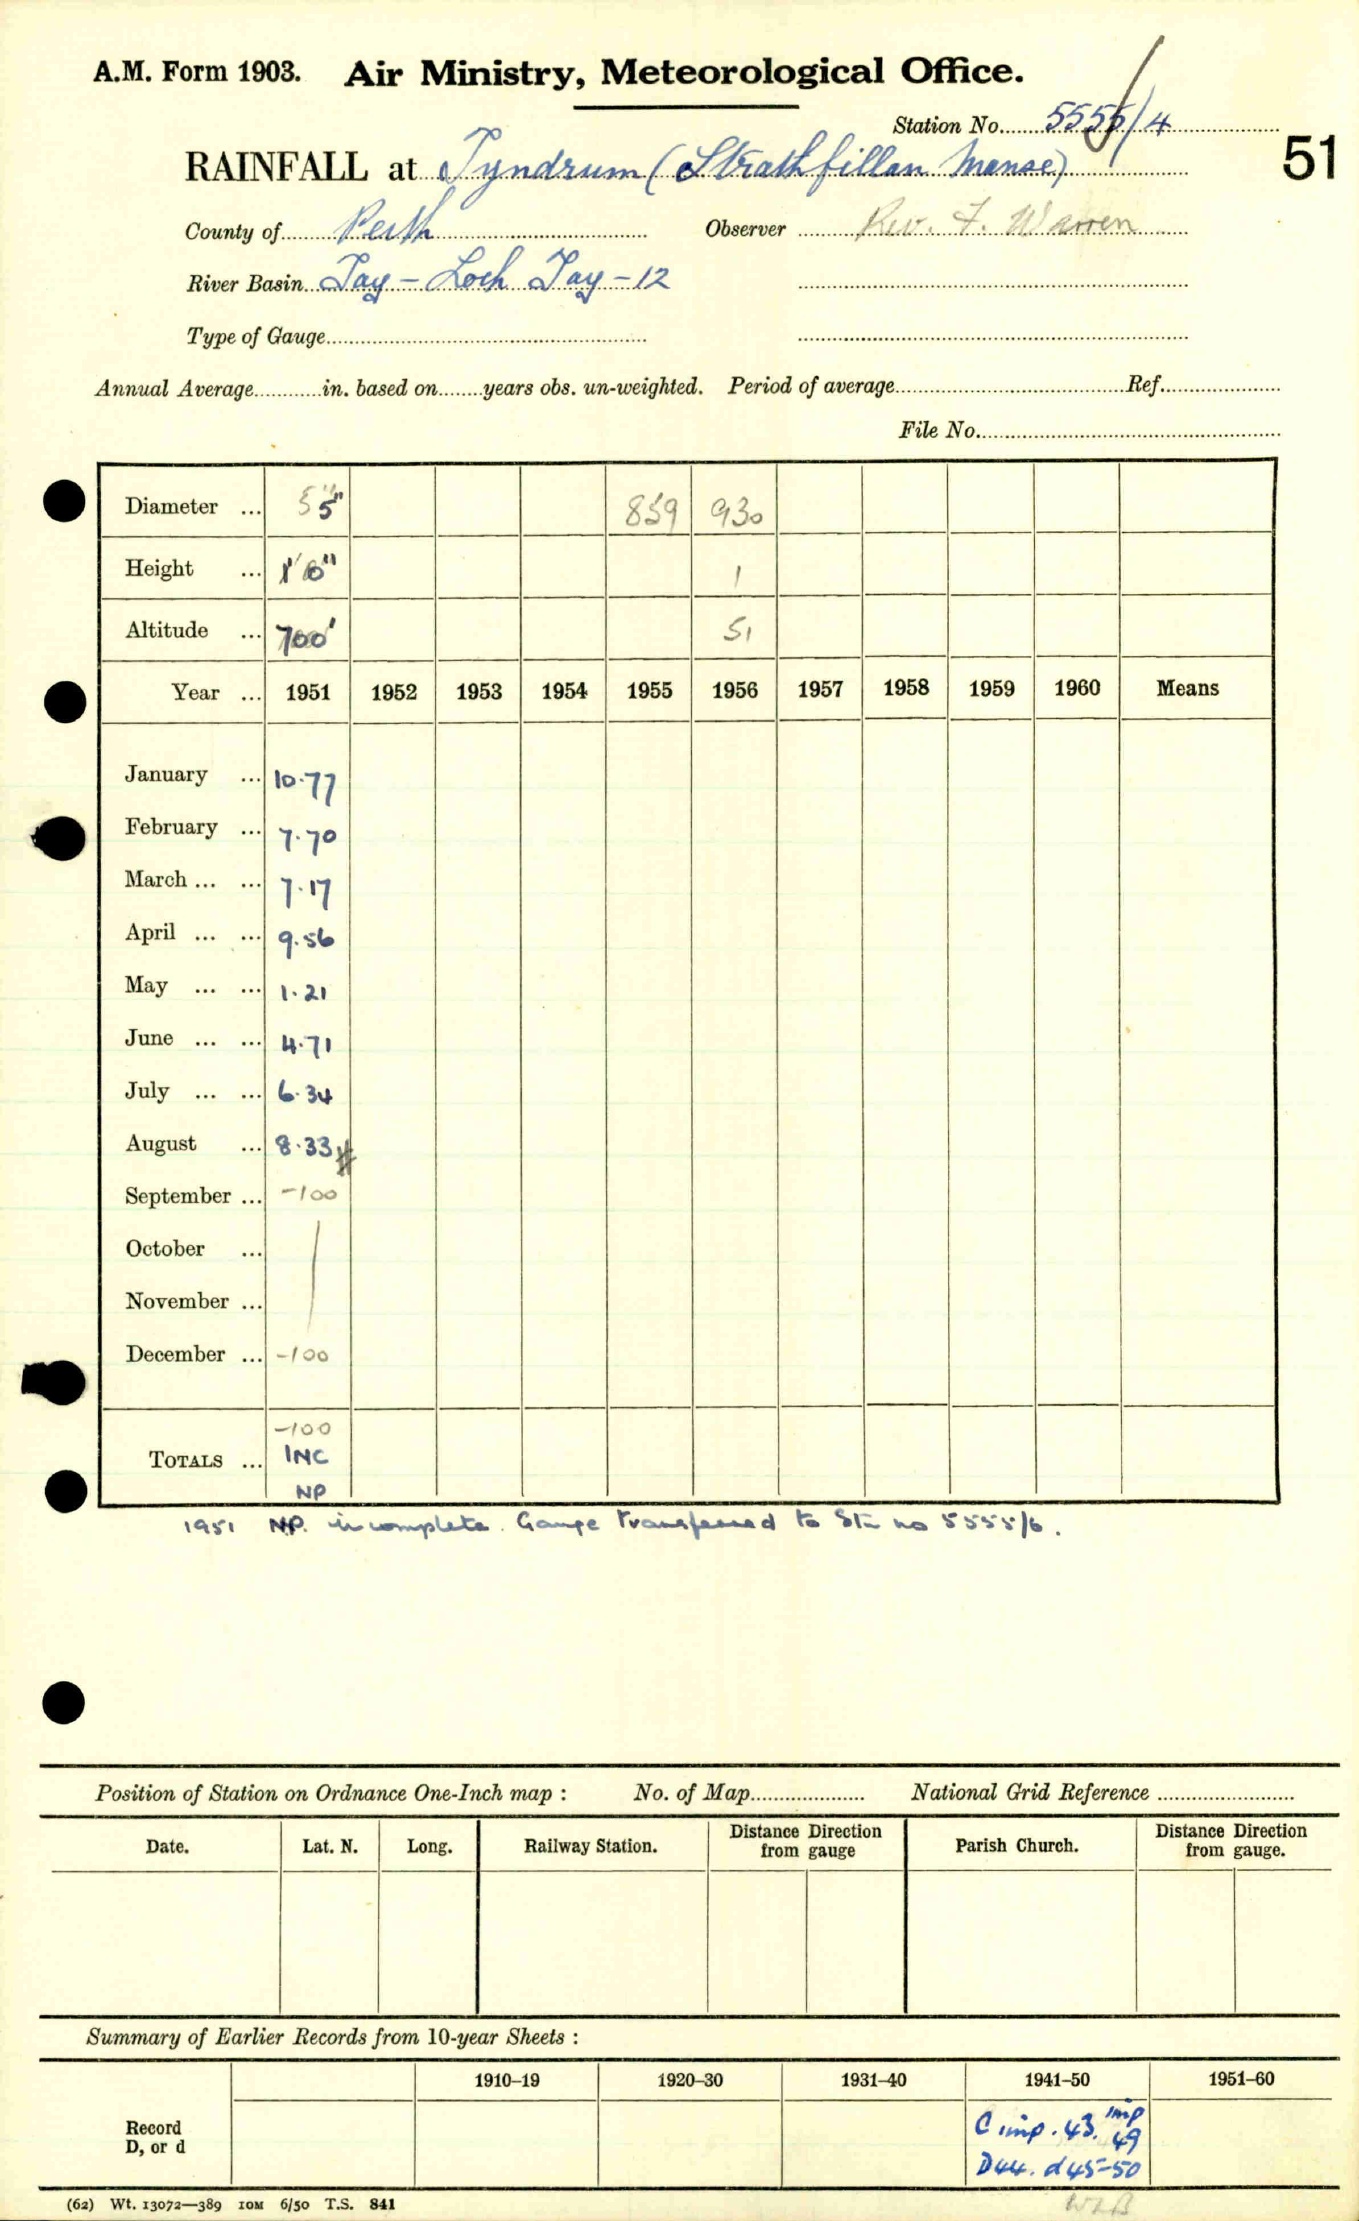 A.M. Form 1903. Air Ministry, Meteorological Office.
Station No. 5555/4
51
RAINFALL at Tyndrum (Strathfillan Manse)
County of Perth Observer Rev. F. Warren
River Basin Tay - Loch Tay - 12
Type of Gauge
Annual Average in. based on years obs. un-weighted. Period of average Ref.
File No.
Diameter ... 5" 5" 859 930
Height ... 1' 0" 1
Altitude ... 700' 51
Year ... 1951 1952 1953 1954 1955 1956 1957 1958 1959 1960 Means
January ... 10.77
February ... 7.70
March ... ... 7.17
April ... ... 9.56
May ... ... 1.21
June ... ... 4.71
July ... ... 6.34
August ... 8.33 #
September ... -100
October ...
November ...
December ... -100
-100
TOTALS ... INC
NP
1951 NP. incomplete. Gauge transferred to Stn no 5555/6.
Position of Station on Ordnance One-Inch map : No. of Map National Grid Reference
Date. Lat. N. Long. Railway Station. Distance from gauge Direction Parish Church. Distance from gauge. Direction
Summary of Earlier Records from 10-year Sheets :
1910–19 1920–30 1931–40 1941–50 1951–60
Record D, or d
C imp. 43. imp 49
D44. d45-50
(62) Wt. 13072—389 10M 6/50 T.S. 841
WLB